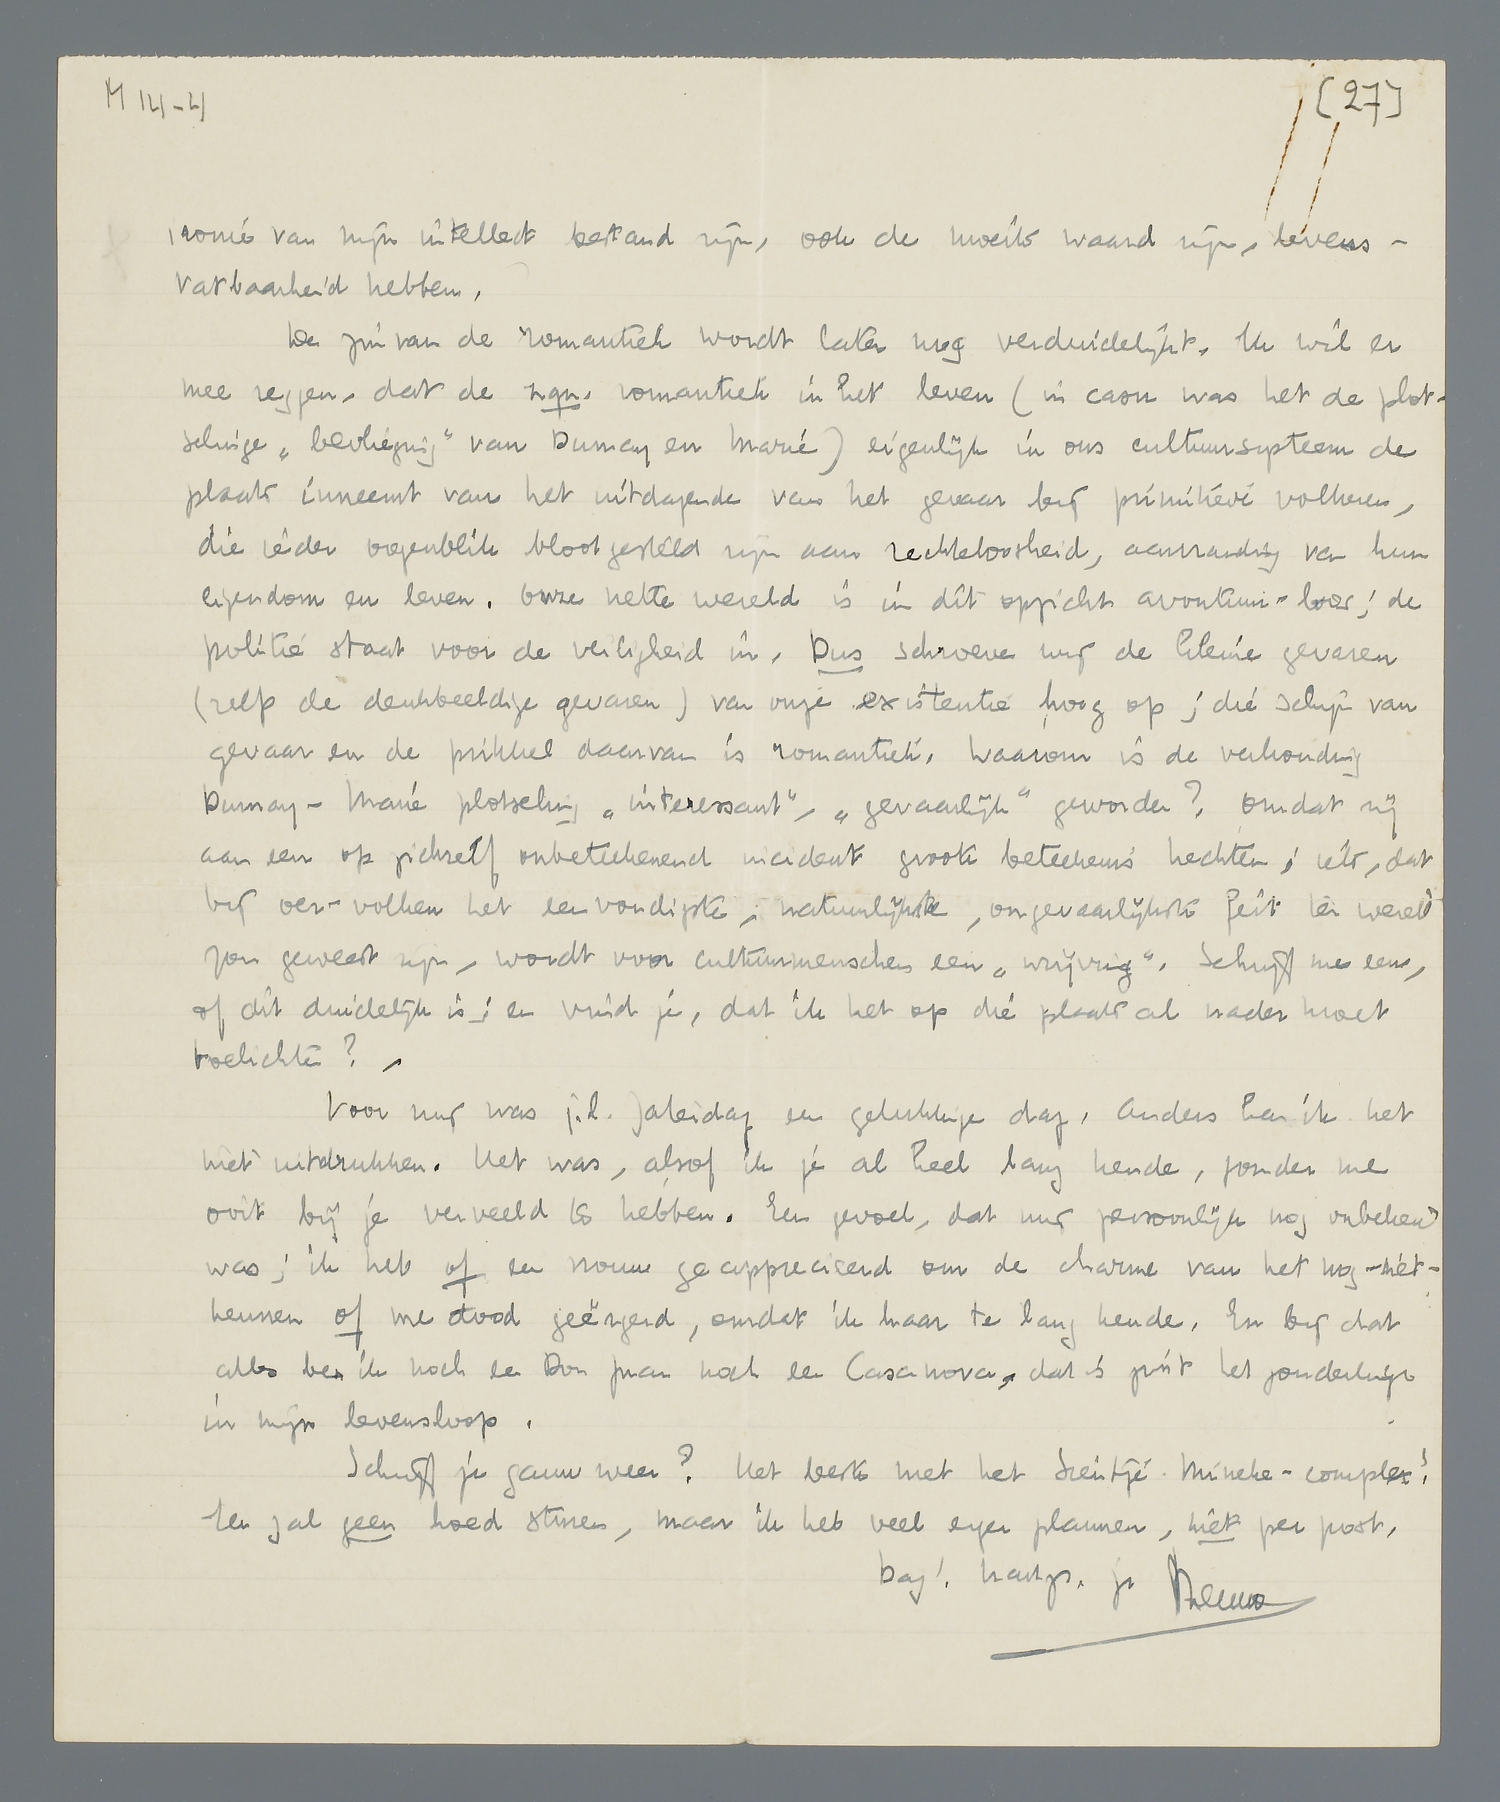 M 14-4
[27]
ironie van mijn intellect bestand zijn, ook de moeite waard zijn, levens-
vatbaarheid hebben.
De zin van de romantiek wordt later nog verduidelijkt. Ik wil er
mee zeggen, dat de zgn. romantiek in het leven (in casu was het de plot-
selinge „bevlieging" van Dumay en Marie) eigenlijk in ons cultuursysteem de
plaats inneemt van het uitdagende van het gevaar bij primitieve volkeren,
die ieder oogenblik blootgesteld zijn aan rechteloosheid, aanranding van hun
eigendom en leven. Onze nette wereld is in dit opzicht avontuur-loos; de
politie staat voor de veiligheid in. Dus schroeven wij de kleine gevaren
(zelfs de denkbeeldige gevaren) van onze existentie hoog op; die schijn van
gevaar en de prikkel daarvan is romantiek. Waarom is de verhouding
Dumay-Marie plotseling „interessant", „gevaarlijk" geworden? Omdat zij
aan een op zichzelf onbeteekenend incident groote beteekenis hechten; iets, dat
bij oer-volken het eenvoudigste, natuurlijkste, ongevaarlijkste feit ter wereld
zou geweest zijn, wordt voor cultuurmenschen een „wrijving". Schrijf me eens,
of dit duidelijk is; en vind je, dat ik het op die plaats al nader moet
toelichten?
Voor mij was j.l. Zaterdag een gelukkige dag. Anders kan ik het
niet uitdrukken. Het was, alsof ik je al heel lang kende, zonder me
ooit bij je verveeld te hebben. Een gevoel, dat mij persoonlijk nog onbekend
was; ik heb of een vrouw geapprecieerd om de charme van het nog-niet-
kennen of me dood geërgerd, omdat ik haar te lang kende. En bij dat
alles ben ik noch een Don Juan noch een Casanova, dat is juist het zonderlinge
in mijn levensloop.
Schrijf je gauw weer? Het beste met het Sientje Mineke-complex!
Ik zal geen hoed sturen, maar ik heb veel eigen plannen, niet per post.
Dag! hartgr. je Menno